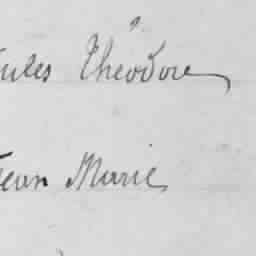 Jules Théodore
Jean Marie